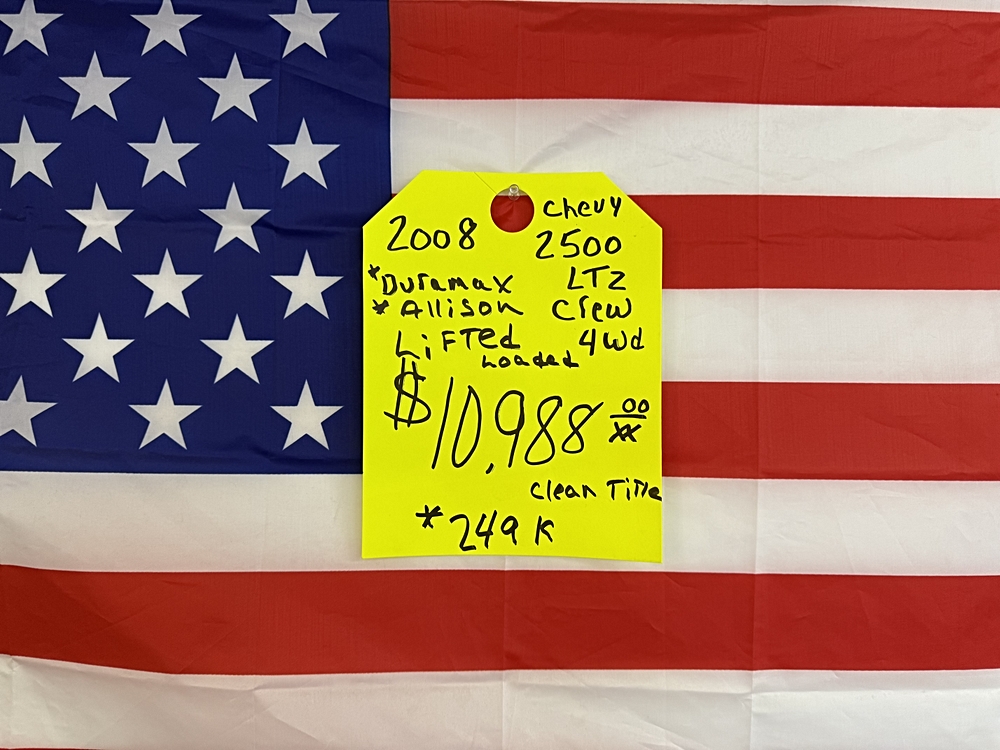 2008 Chevy
2500
*Duramax LTZ
*Allison Crew
LiFTed 4wd
Loaded
$10,988 00/xx
Clean Title
*249K